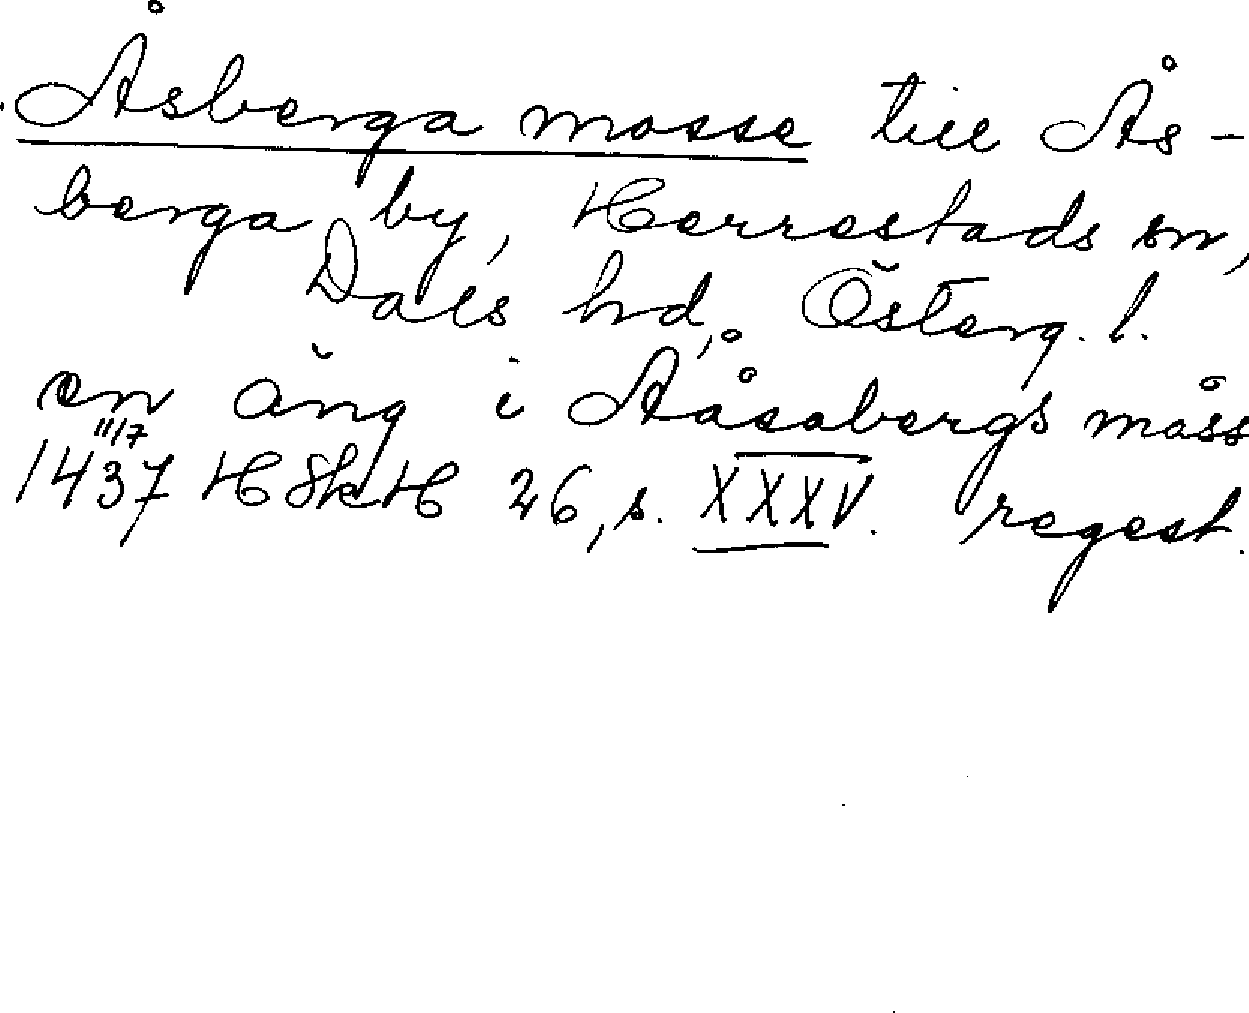 Åsberga mosse till Ås-
berga by, Herrestads sn,
Dals hd, Österg. l.
en äng i Ååsabergs måss
11/7
1437 HSkH 26, s. XXXV. regest.